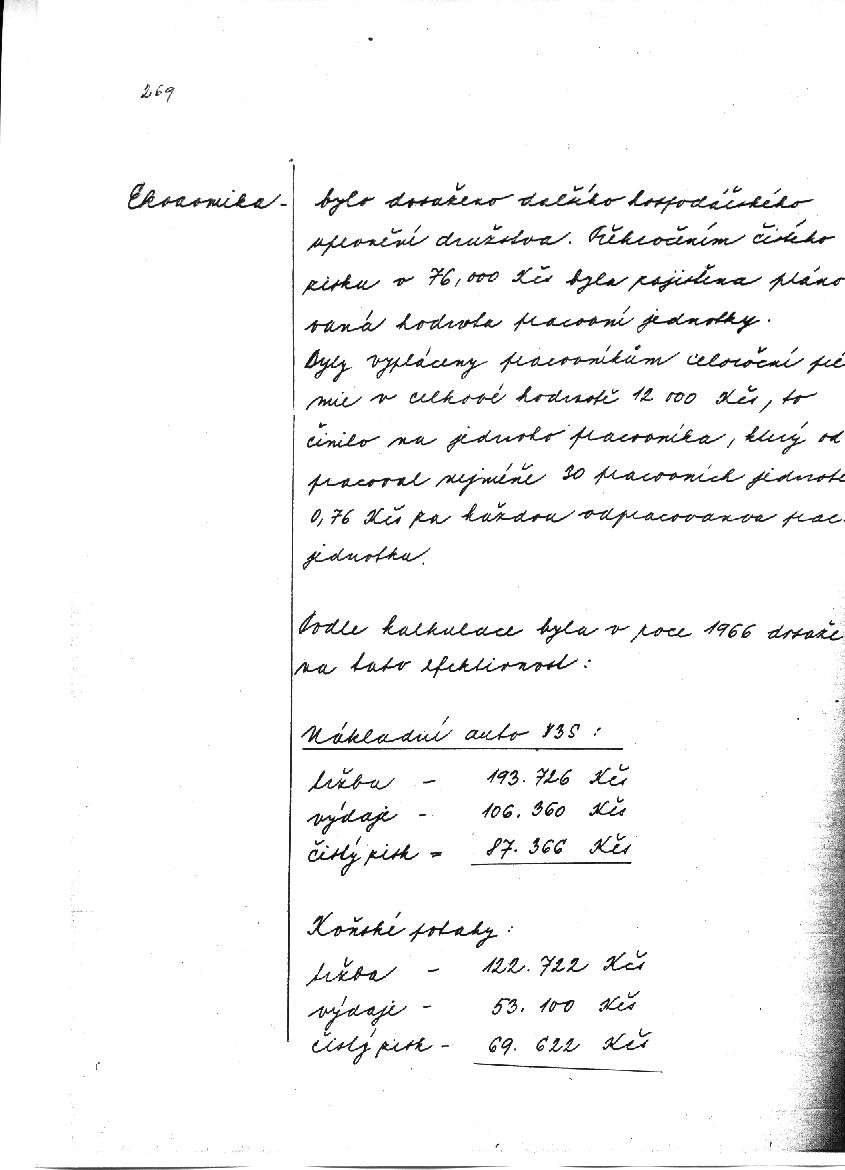 269
Ekonomika - bylo dosaženo dalšího hospodářského
upevnění družstva. Překročením čistého
zisku o 76,000 Kčs byla zajištěna pláno
vaná hodnota pracovní jednotky.
Byly vypláceny pracovníkům celoroční pré
mie v celkové hodnotě 12 000 Kčs, to
činilo na jednoho pracovníka, který od
pracoval nejméně 30 pracovních jednotek
0,76 Kčs za každou odpracovanou prac.
jednotku.
Podle kalkulace byla v roce 1966 dosaže
na tato efektivnost:
Nákladní auto 835 :
tržba - 193.726 Kčs
výdaje - 106.360 Kčs
čistý zisk = 87.366 Kčs
Koňské potahy :
tržba - 122.722 Kčs
výdaje - 53.100 Kčs
čistý zisk - 69.622 Kčs